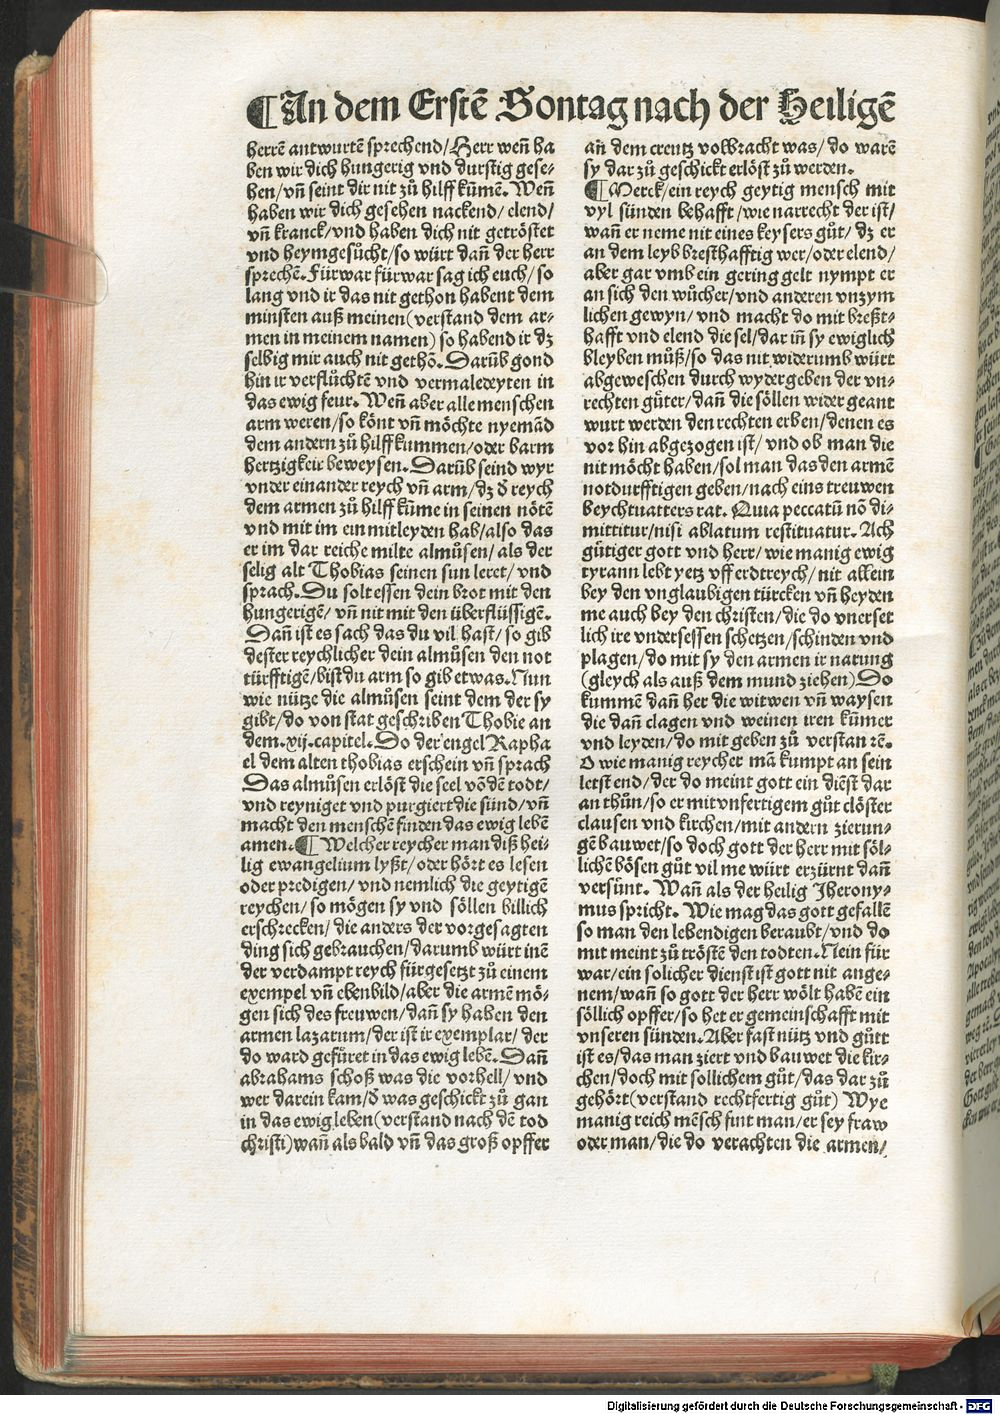 ¶ An dem Erstē Sontag nach der Heiligē
herrē antwurtē sprechend/Herr weñ ha
ben wir dich hungerig vnd durstig gese-
hen/vñ seint dir nit zů hilff kūmē. Weñ
haben wir dich gesehen nackend/elend/
vñ kranck/vnd haben dich nit getröstet
vnd heymgesůcht/so würt dañ der herr
sprechē. Fürwar fürwar sag ich euch/so
lang vnd ir das nit gethon habent dem
minsten auß meinen(verstand dem ar-
men in meinem namen) so habend ir dz
selbig mir auch nit gethō. Darūb gond
hin ir verflůchtē vnd vermaledeyten in
das ewig feur. Weñ aber alle menschen
arm weren/so könt vñ möchte nyemād
dem andern zů hilff kummen/oder barm
hertzigkeir beweysen. Darūb seind wyr
vnder einander reych vñ arm/dz ð reych
dem armen zů hilff kūme in seinen nötē
vnd mit im ein mitleyden hab/also das
er im dar reiche milte almůsen/als der
selig alt Thobias seinen sun leret/vnd
sprach. Du solt essen dein brot mit den
hungerigē/vñ nit mit den überflüssigē.
Dañ ist es sach das du vil hast/so gib
dester reychlicher dein almůsen den not
türfftigē/bist du arm so gib etwas. Nun
wie nütze die almůsen seint dem der sy
gibt/do von stat geschriben Thobie an
dem.xij.capitel. Do der engel Rapha
el dem alten thobias erschein vñ sprach
Das almůsen erlöst die seel vō dē todt/
vnd reyniget vnd purgiert die sünd/vñ
macht den menschē finden das ewig lebē
amen. ¶ Welcher reycher man diß hei-
lig ewangelium lyßt/oder hört es lesen
oder predigen/vnd nemlich die geytigē
reychen/so mögen sy vnd söllen billich
erschrecken/die anders der vorgesagten
ding sich gebrauchen/darumb würt inē
der verdampt reych fürgesetzt zů einem
exempel vñ ebenbild/aber die armē mö-
gen sich des freuwen/dañ sy haben den
armen lazarum/der ist ir exemplar/der
do ward gefüret in das ewig lebē. Dañ
abrahams schoß was die vorhell/vnd
wer darein kam/ð was geschickt zů gan
in das ewig leben(verstand nach dē tod
christi)wañ als bald vñ das groß opffer
añ dem creutz volbracht was/do warē
sy dar zů geschickt erlöst zů werden.
¶ Merck/ein reych geytig mensch mit
vyl sünden behafft/wie narrecht der ist/
wañ er neme nit eines keysers gůt/dz er
an dem leyb bresthafftig wer/oder elend/
aber gar vmb ein gering gelt nympt er
an sich den wůcher/vnd anderen vnzym
lichen gewyn/vnd macht do mit breßt-
hafft vnd elend die sel/dar iñ sy ewiglich
bleyben můß/so das nit widerumb würt
abgeweschen durch wydergeben der vn-
rechten güter/dañ die söllen wider geant
wurt werden den rechten erben/denen es
vor hin abgezogen ist/vnd ob man die
nit möcht haben/sol man das den armē
notdurfftigen geben/nach eins treuwen
beychtuatters rat. Quia peccatū nō di-
mittitur/nisi ablatum restituatur. Ach
gütiger gott vnd herr/wie manig ewig
tyrann lebt yetz vff erdtreych/nit allein
bey den vnglaubigen türcken vñ heyden
me auch bey den christen/die do vnerset
lich ire vndersessen schetzen/schinden vnd
plagen/do mit sy den armen ir narung
(gleych als auß dem mund ziehen) Do
kummē dañ her die witwen vñ waysen
die dañ clagen vnd weinen iren kūmer
vnd leyden/do mit geben zů verstan ꝛē.
O wie manig reycher mā kumpt an sein
letst end/der do meint gott ein diēst dar
an thůn/so er mit vnfertigem gůt clöster
clausen vnd kirchen/mit andern zierun-
gē bauwet/so doch gott der herr mit söl-
lichē bösen gůt vil me würt erzürnt dañ
versünt. Wañ als der heilig Jherony-
mus spricht. Wie mag das gott gefallē
so man den lebendigen beraubt/vnd do
mit meint zů trösten den todten. Nein für
war/ein solicher dienst ist gott nit ange-
nem/wañ so gott der herr wölt habē ein
söllich opffer/so het er gemeinschafft mit
vnseren sünden. Aber fast nütz vnd gůt
ist es/das man ziert vnd bauwet die kir-
chen/doch mit sollichem gůt/das dar zů
gehört(verstand rechtfertig gůt) Wye
manig reich mēsch fint man/er sey fraw
oder man/die do verachten die armen/
Digitalisierung gefördert durch die Deutsche Forschungsgemeinschaft - DFG